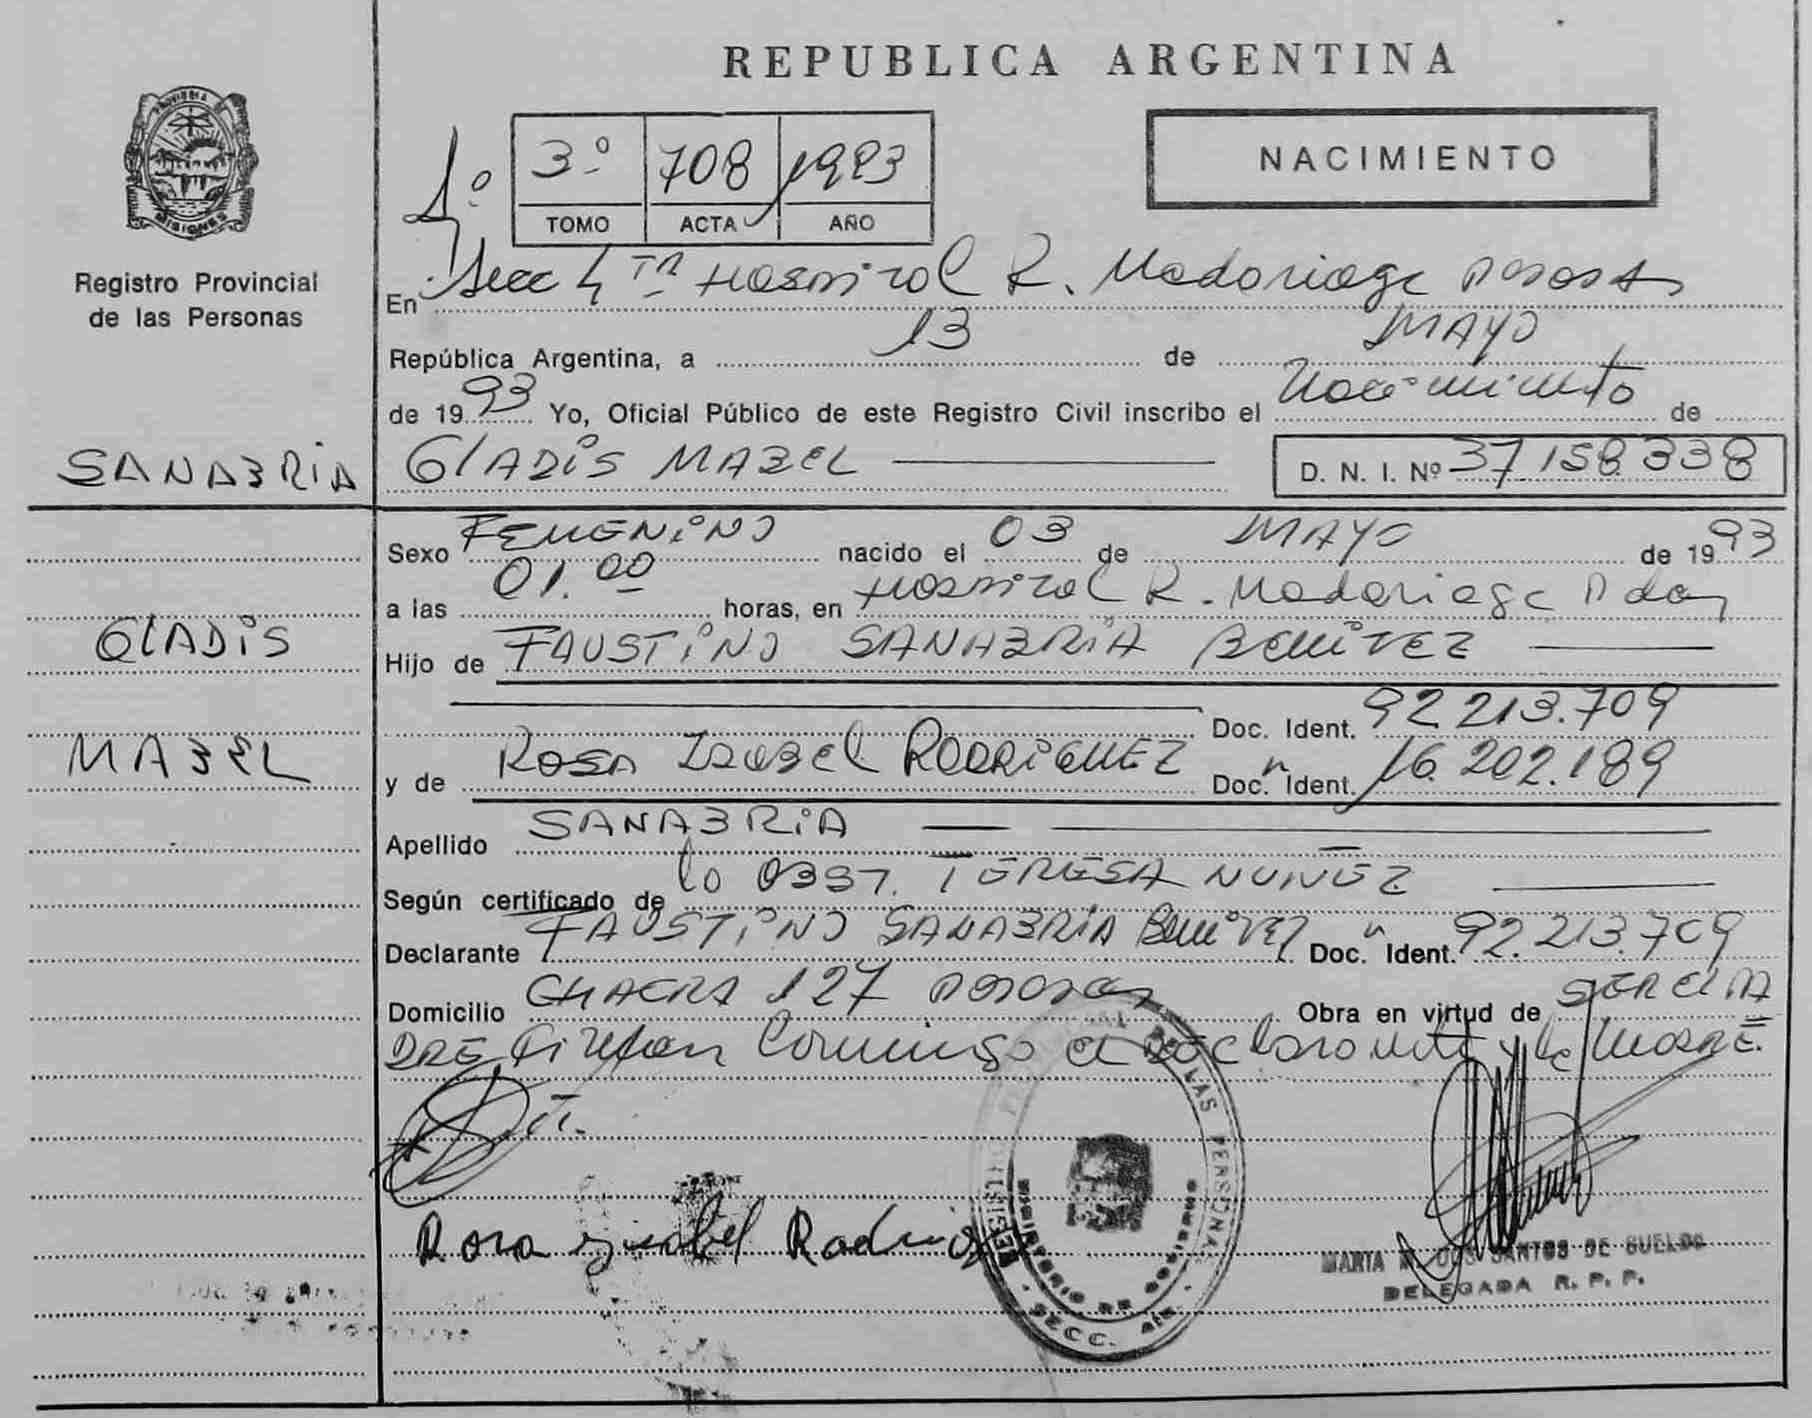 REPUBLICA ARGENTINA
PROVINCIA DE
MISIONES
Registro Provincial
de las Personas
1º
3º 708 1993
TOMO ACTA AÑO
NACIMIENTO
En Secc 4ta Hospital R. Madariaga Posadas
República Argentina, a 13 de MAYO
de 1993 Yo, Oficial Público de este Registro Civil inscribo el Nacimiento de
SANABRIA
GLADIS MABEL
D. N. I. Nº 37.158.338
Sexo FEMENINO nacido el 03 de MAYO de 1993
a las 01.00 horas, en Hospital R. Madariaga Pdas
GLADIS
Hijo de FAUSTINO SANABRIA BENITEZ
Doc. Ident. 92.213.709
MABEL
y de ROSA Isabel RODRIGUEZ Doc. Ident. 16.202.189
Apellido SANABRIA
Según certificado de la OBST. TERESA NUÑEZ
Declarante FAUSTINO SANABRIA BENITEZ Doc. Ident. 92.213.709
Domicilio CHACRA 127 Posadas Obra en virtud de SER EL PA
DRE Firman Conmigo el Declarante y la MADRE.
Rosa ysabel Rodrig
REGISTRO PROVINCIAL DE LAS PERSONAS
MINISTERIO DE GOBIERNO
SECC. 4ta
MARTA DOS SANTOS DE SUELDO
DELEGADA R. P. P.